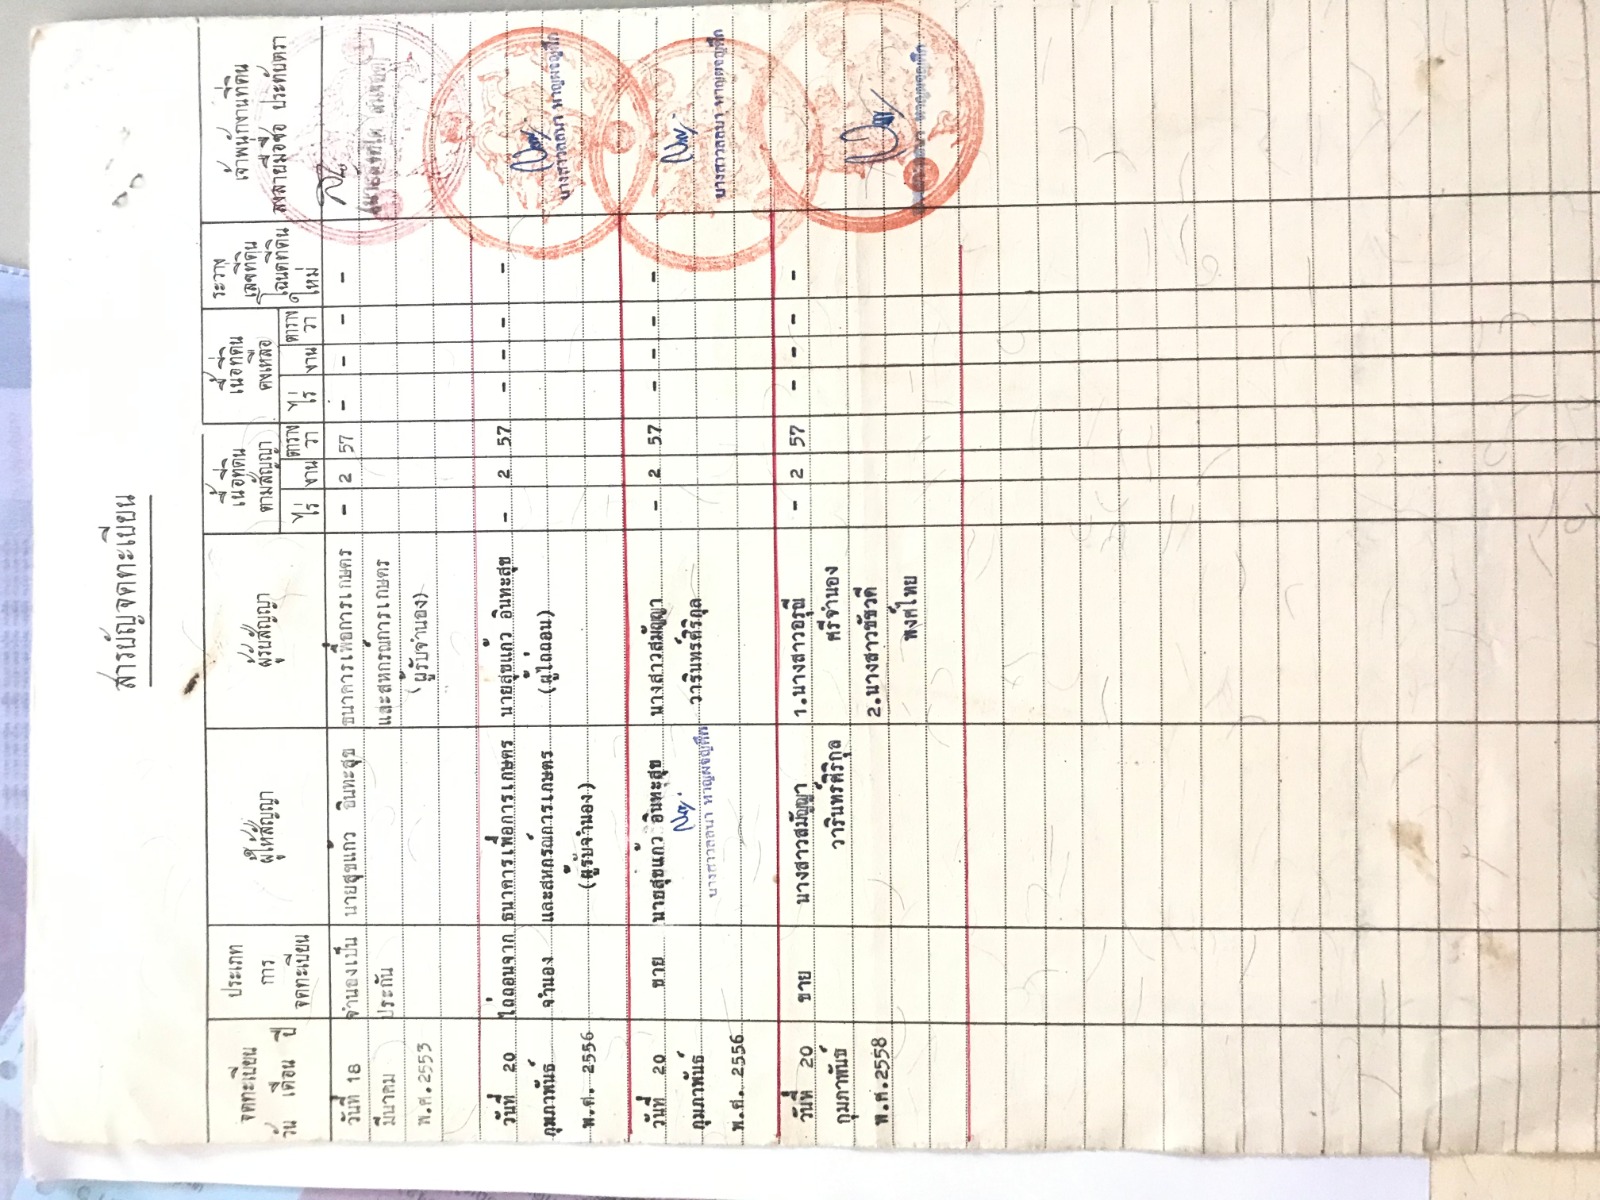 สารบัญจดทะเบียน
จดทะเบียน
วัน เดือน ปี
ประเภท
การ
จดทะเบียน
ผู้ให้สัญญา
ผู้รับสัญญา
เนื้อที่ดิน
ตามสัญญา
ไร่ งาน ตาราง
วา
เนื้อที่ดิน
คงเหลือ
ไร่ งาน ตาราง
วา
ระวาง
เลขที่ดิน
โฉนดที่ดิน
ใหม่
เจ้าพนักงานที่ดิน
ลงลายมือชื่อ ประทับตรา
วันที่ 18 จำนองเป็น นายสุขแก้ว อินทะสุข ธนาคารเพื่อการเกษตร - 2 57 - - - -
มีนาคม ประกัน และสหกรณ์การเกษตร
พ.ศ.2553 (ผู้รับจำนอง)
วันที่ 20 ไถ่ถอนจาก ธนาคารเพื่อการเกษตร นายสุขแก้ว อินทะสุข - 2 57 - - - -
กุมภาพันธ์ จำนอง และสหกรณ์การเกษตร (ผู้ไถ่ถอน)
พ.ศ. 2556 (ผู้รับจำนอง)
นางสาวลลนา หาญผจญศึก
วันที่ 20 ขาย นายสุขแก้ว อินทะสุข นางสาวสมัญญา - 2 57 - - - -
กุมภาพันธ์ วารินทร์ศิริกุล
นางสาวลลนา หาญผจญศึก นางสาวลลนา หาญผจญศึก
พ.ศ. 2556
วันที่ 20 ขาย นางสาวสมัญญา 1.นางสาวอรุณี - 2 57 - - - -
กุมภาพันธ์ วารินทร์ศิริกุล ศรีจำนอง
พ.ศ.2558 2.นางสาวชัชวดี
พงศ์ไทย
หาญผจญศึก